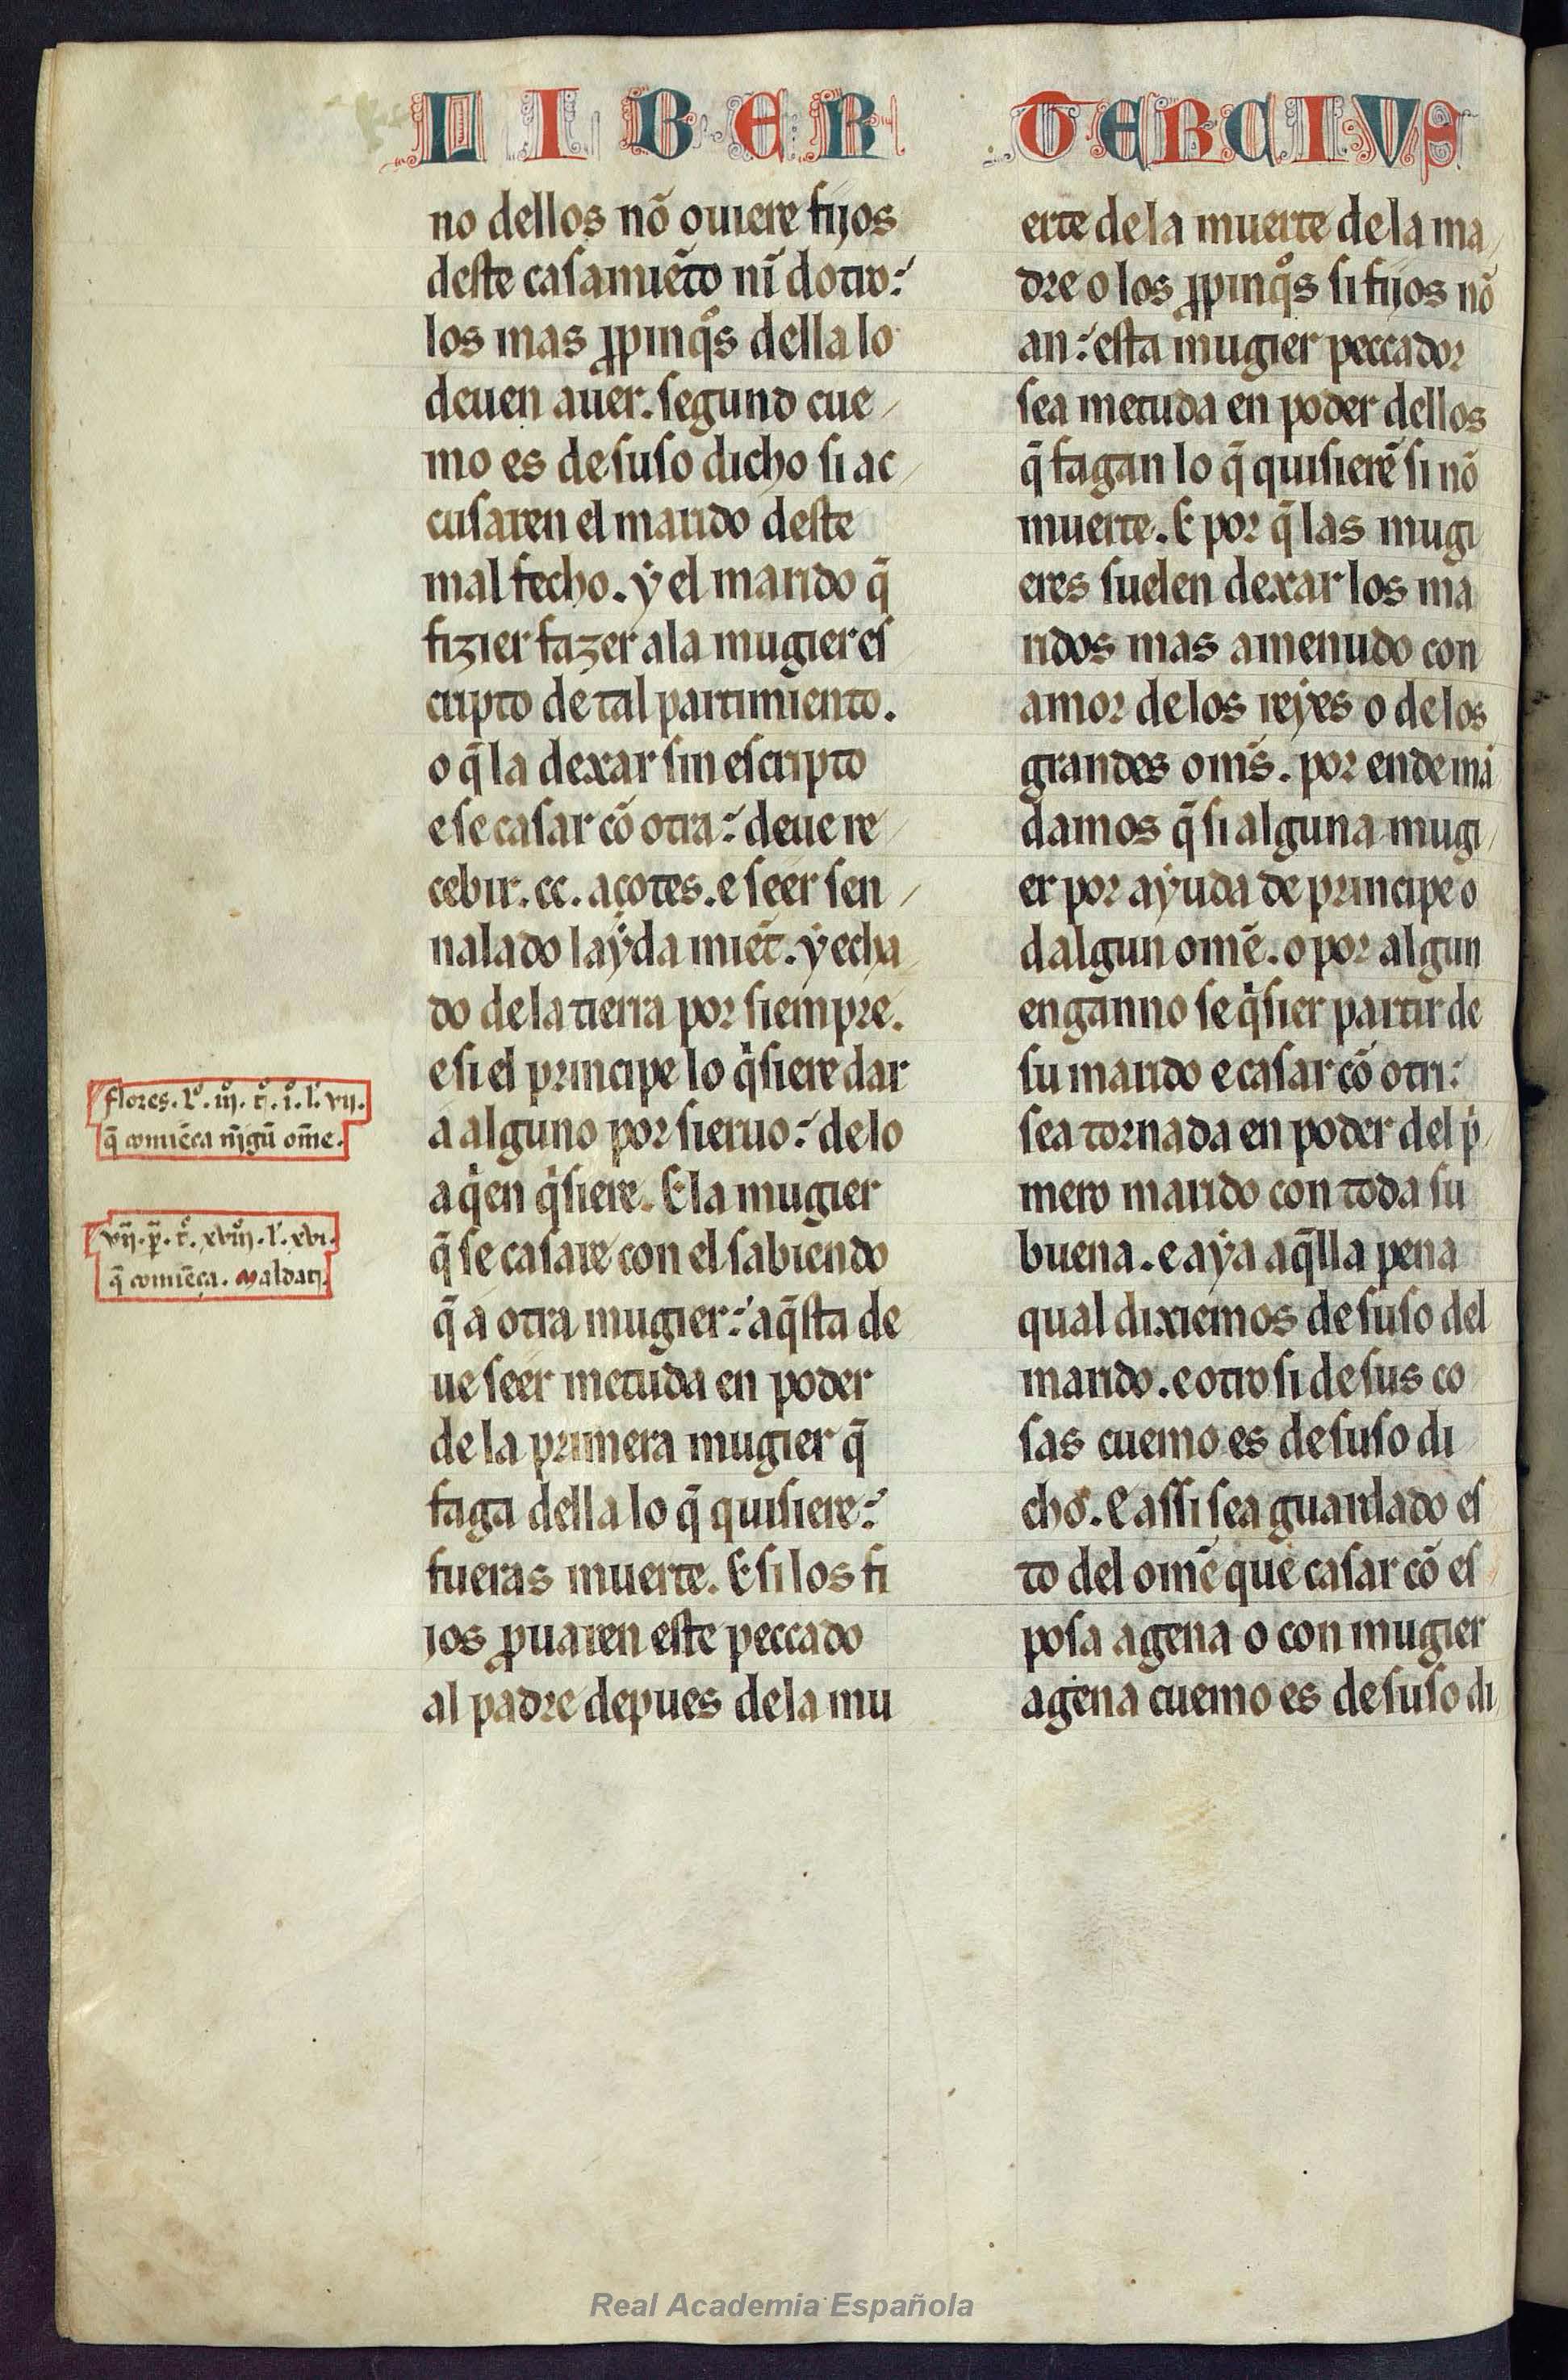 LIBER TERCIVS
no dellos nõ ouiere fijos
deste casamiẽto nĩ dotro:
los mas ꝓpinq̊s della lo
deuen auer. segund cue
mo es desuso dicho si ac
cusaren el marido deste
mal fecho. ẏ el marido q̃
fizier fazer ala mugier es
cripto de tal partimiento.
o q̃ la dexar sin escripto
e se casar cõ otra: deue re
cebir. cc. açotes. e seer sen
nalado laẏda miẽt. ẏ echa
do dela tierra por siempre.
e si el principe lo qͥsiere dar
a alguno por sieruo: delo
a qͥen qͥsiere. E la mugier
q̃ se casare con el sabiendo
q̃ a otra mugier: aq̃sta de
ue seer metuda en poder
de la primera mugier q̃
faga della lo q̃ quisiere:
fueras muerte. E si los fi
jos ꝓuaren este peccado
al padre depues dela mu
flores. lº. iij. tº. i. l. vij.
q̃ comiẽca nĩgũ om̃e.
vij. p̃. tº. xviij. l. xvi.
q̃ comiẽça. Maldat
erte dela muerte dela ma
dre o los ꝓpinq̊s si fijos nõ
an: esta mugier peccador
sea metuda en poder dellos
q̃ fagan lo q̃ quisierẽ si nõ
muerte. E por q̃ las mugi
eres suelen dexar los ma
ridos mas amenudo con
amor delos reẏes o delos
grandes om̃s. por ende mã
damos q̃ si alguna mugi
er por aẏuda de principe o
dalgun omẽ. o por algun
enganno se qͥsier partir de
su marido e casar cõ otri:
sea tornada en poder del pͥ
mero marido con toda su
buena. e aẏa aq̃lla pena
qual dixiemos desuso del
marido. e otrosi de sus co
sas cuemo es desuso di
cho. E assi sea guardado es
to del omẽ que casar cõ es
posa agena o con mugier
agena cuemo es desuso di
Real Academia Española